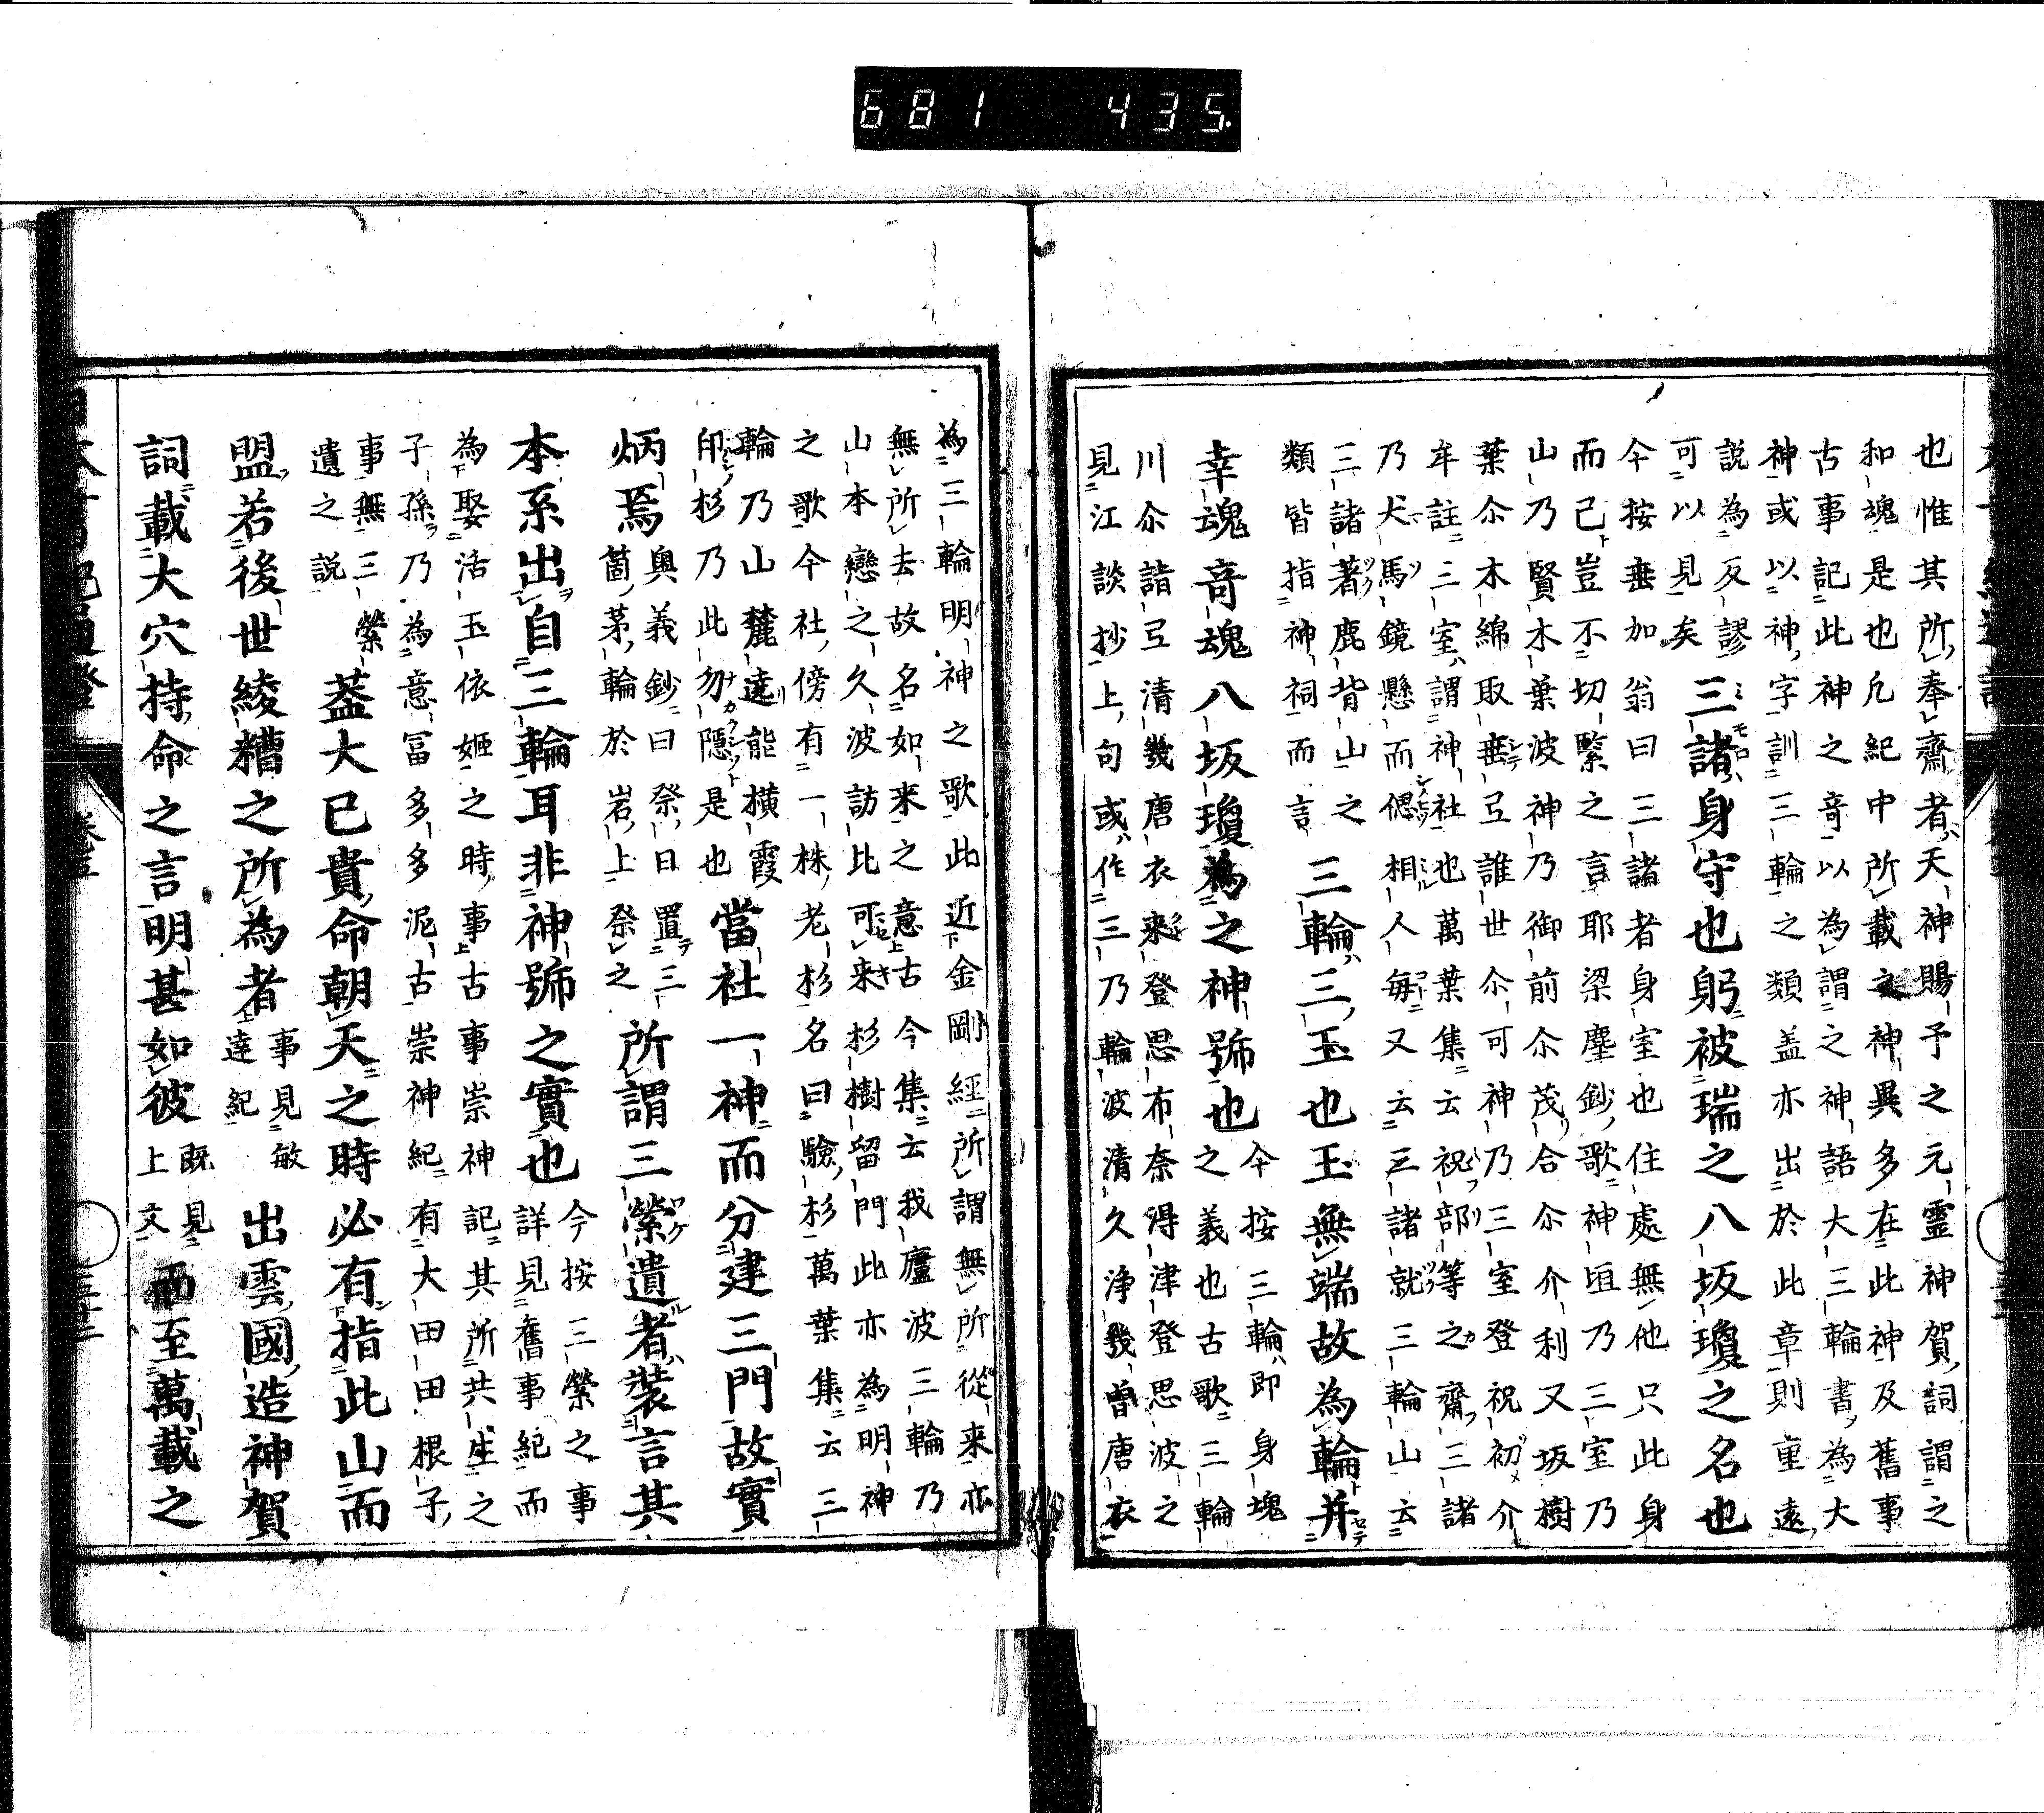 681 435
也惟其所奉齋者ハ天神賜予之元靈神賀詞謂之
和魂是也凢紀中所載之神異多在此神及舊事
古事記此神之竒以為謂之神語大三輪書為大
神或以神字訓三輪之類盖亦出於此章則重遠
說為反謬
可以見矣
三諸ミモロハ身守也躬被瑞之八坂瓊之名也
今按垂加翁曰三諸者身室也住處無他只此身
而已豈不切緊之言耶梁塵鈔歌神垣乃三室乃
山乃賢木葉波神乃御前尒茂合尒介利又坂樹
葉尒木綿取垂弖誰世尒可神乃三室登祝初介
牟註三室ハ謂神社也萬葉集云祝部等之齋三諸
乃犬馬鏡懸而偲相人每又云三諸就三輪山云
三諸著鹿背山之
類皆指神祠而言
三輪ハ三玉也玉無端故為輪并
幸魂竒魂八坂瓊為之神號也
今按三輪ハ即身塊
之義也古歌三輪
川尒詣弖清幾唐衣來登思布奈得津登思波之
見江談抄上句或ハ作三乃輪波清久浄幾曽唐衣
為三輪明神之歌此近金剛經所謂無所從来亦
無所去故名如来之意古今集云我廬波三輪乃
山本戀之久波訪比可来杉樹留門此亦為明神
之歌今社傍有一株老杉名曰驗杉萬葉集云三
輪乃山麓遠能橫霞
印杉乃此勿隱是也
當社一神而分建三門故實
炳焉
奥義鈔曰祭日置三
箇茅輪於岩上祭之
所謂三縈遺者裝言其
本系出自三輪耳非神號之實也
今按三縈之事
詳見舊事紀而
為娶活玉依姬之時事古事崇神記其所共生之
子孫乃為意冨多多泥古崇神紀有大田田根子
事無三縈
遺之說
葢大已貴命朝天之時必有指此山而
盟若後世綾糟之所為者
事見敏
達紀
出雲國造神賀
詞載大穴持命之言明甚如彼
既見
上文
而至萬載之